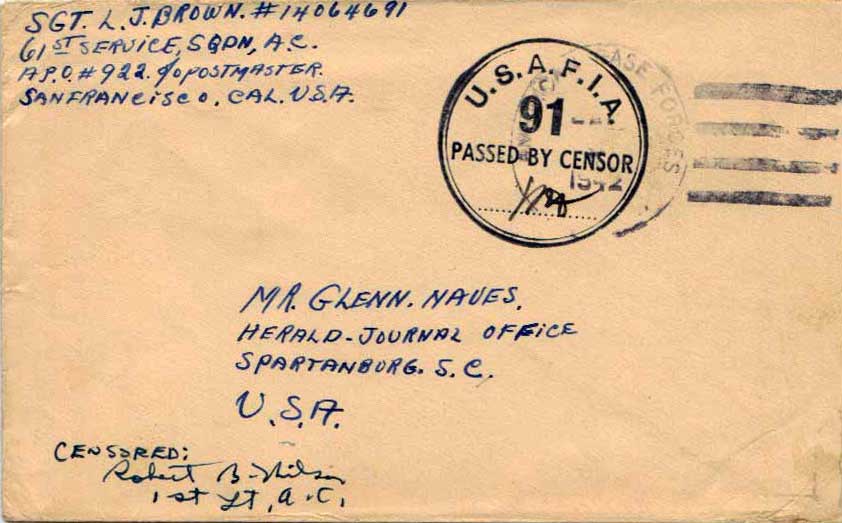 SGT. L. J. BROWN. #14064691
61ST SERVICE, SQDN, A.C.
A.P.O. #922. c/o POSTMASTER.
SANFRANCISCO, CAL. U.S.A.
U.S.A.F.I.A.
91
PASSED BY CENSOR
1942
BASE FORCES
MR. GLENN. NAVES,
HERALD-JOURNAL OFFICE
SPARTANBURG. S. C.
U.S.A.
CENSORED:
Robert B.
1st Lt, A.C.